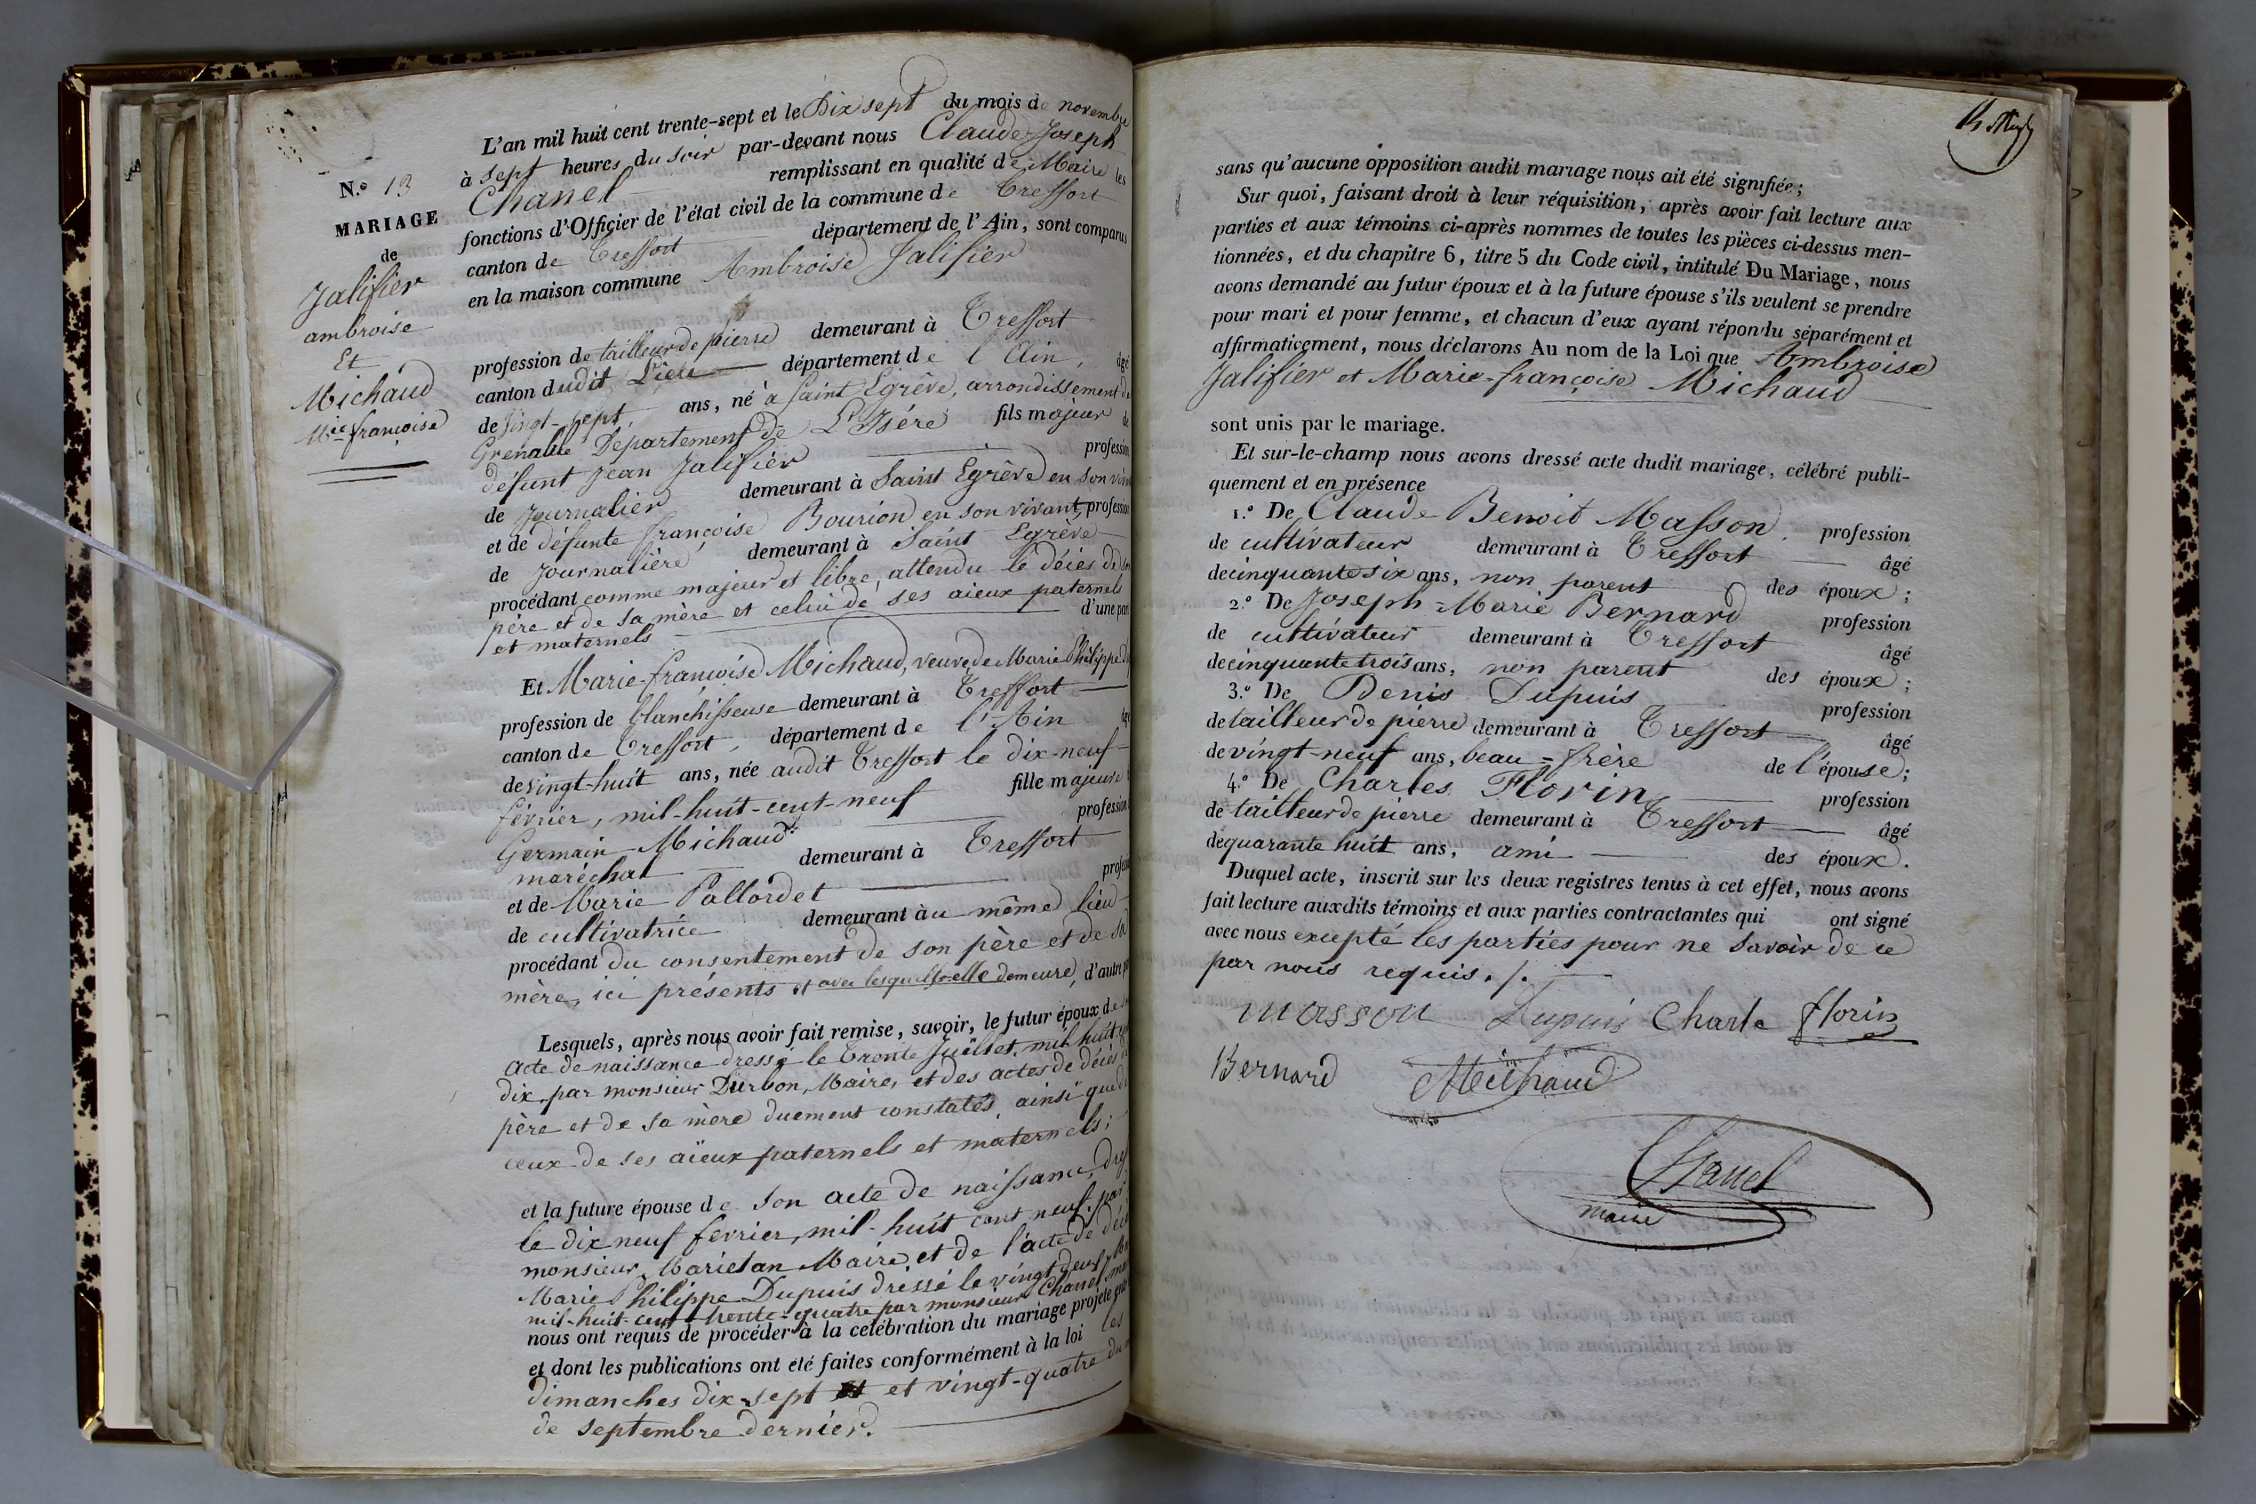 N.º 13
MARIAGE
de
Jalifier
ambroise
Et
Michaud
Mie françoise
L'an mil huit cent trente-sept et le Dix sept du mois de novembre
à sept heures du soir par-devant nous Claude Joseph
Chanel remplissant en qualité de Maire les
fonctions d'Officier de l'état civil de la commune de Treffort
canton de Treffort département de l'Ain, sont comparus
en la maison commune Ambroise Jalifier
profession de tailleur de pierre demeurant à Treffort
canton dudit Lieu département de l'Ain, âgé
de Vingt-sept ans, né à Saint Egrève, arrondissement de
Grenoble Département de L'Isére fils majeur de
défunt Jean Jalifier profession
de Journalier demeurant à Saint Egrève en son viv
et de défunte françoise Bourion en son vivant, profession
de Journalière demeurant à Saint Egrève
procédant comme majeur et libre, attendu le décès de son
père et de sa mère et celui de ses aieux paternels
et maternels d'une part
Et Marie-françoise Michaud, veuve de Marie Philippe D
profession de blanchisseuse demeurant à Treffort
canton de Treffort, département de l'Ain âgé
de vingt-huit ans, née audit Treffort le dix-neuf
février, mil-huit-cent-neuf fille majeure
Germain Michaud profession
maréchal demeurant à Treffort
et de Marie Pallordet profes
de cultivatrice demeurant au même lieu
procédant du consentement de son père et de sa
mère, ici présents et avec lesquels elle demeure, d'autre part
Lesquels, après nous avoir fait remise, savoir, le futur époux de son
acte de naissance dressé le trente Juillet, mil huit cent
dix, par monsieur Durbon, Maire, et des actes de décès de
père et de sa mère duement constatés, ainsi que de
ceux de ses aïeux paternels et maternels;
et la future épouse de son acte de naissance, dres
le dix neuf fevrier, mil-huit cent neuf, par
monsieur Marietan Maire, et de l'acte de décès
Marie Philippe Dupuis dressé le vingt deux
mil-huit-cent trente-quatre par monsieur Chanel mai
nous ont requis de procéder à la célébration du mariage projeté
et dont les publications ont été faites conformément à la loi les
dimanches dix-sept et vingt-quatre du m
de septembre dernier.
sans qu'aucune opposition audit mariage nous ait été signifiée;
Sur quoi, faisant droit à leur réquisition, après avoir fait lecture aux
parties et aux témoins ci-après nommes de toutes les pièces ci-dessus men-
tionnées, et du chapitre 6, titre 5 du Code civil, intitulé Du Mariage, nous
avons demandé au futur époux et à la future épouse s'ils veulent se prendre
pour mari et pour femme, et chacun d'eux ayant répondu séparément et
affirmativement, nous déclarons Au nom de la Loi que Ambroise
Jalifier et Marie-françoise Michaud
sont unis par le mariage.
Et sur-le-champ nous avons dressé acte dudit mariage, célébré publi-
quement et en présence
1.º De Claude Benoit Masson. profession
de cultivateur demeurant à Treffort âgé
de cinquante six ans, non parent des époux;
2.º De Joseph-Marie Bernard profession
de cultivateur demeurant à Treffort âgé
de cinquante trois ans, non parent des époux;
3.º De Denis Dupuis profession
de tailleur de pierre demeurant à Treffort âgé
de vingt-neuf ans, beau-frère de l'épouse;
4.º De Charles Florin profession
de tailleur de pierre demeurant à Treffort âgé
de quarante huit ans, ami des époux.
Duquel acte, inscrit sur les deux registres tenus à cet effet, nous avons
fait lecture auxdits témoins et aux parties contractantes qui ont signé
avec nous excepté les parties pour ne savoir de ce
par nous requis. /.
masson Dupuis Charle florin
Bernard Michaud
Chanel
maire